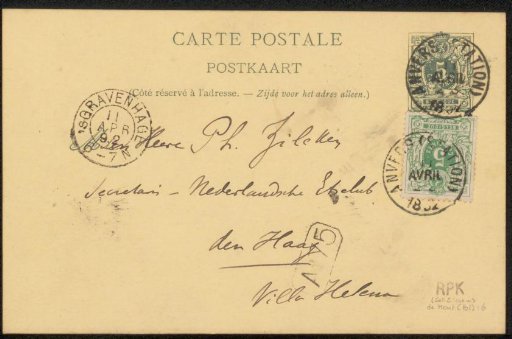 CARTE POSTALE
POSTKAART
(Côté réservé à l'adresse. — Zijde voor het adres alleen.)
ANVERS (STATION)
1892
'SGRAVENHAGE
11
APR
92
6-7N
ANVERS (STATION)
AVRIL
1892
5
Den Heere Ph. Zilcken
Secretaris - Nederlandsche Etsclub
den Haag
Villa Helena
RPK